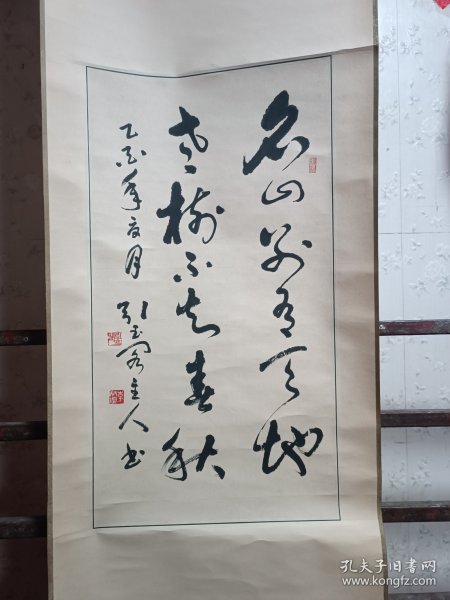 名山别有天地
老树不知春秋
乙酉年夏月 引玉阁主人书
孔夫子旧书网
www.kongfz.com